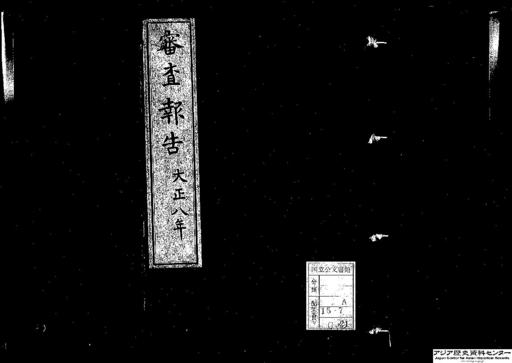 審査報告 大正八年
国立公文書館
分類
配架番号
A
15-7
アジア歴史資料センター
Japan Center for Asian Historical Records